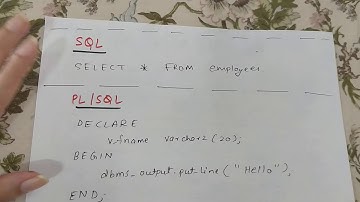 SQL
SELECT * FROM employees
PL/SQL
DECLARE
v_fname varchar2(20);
BEGIN
dbms_output.put_line("Hello");
END;